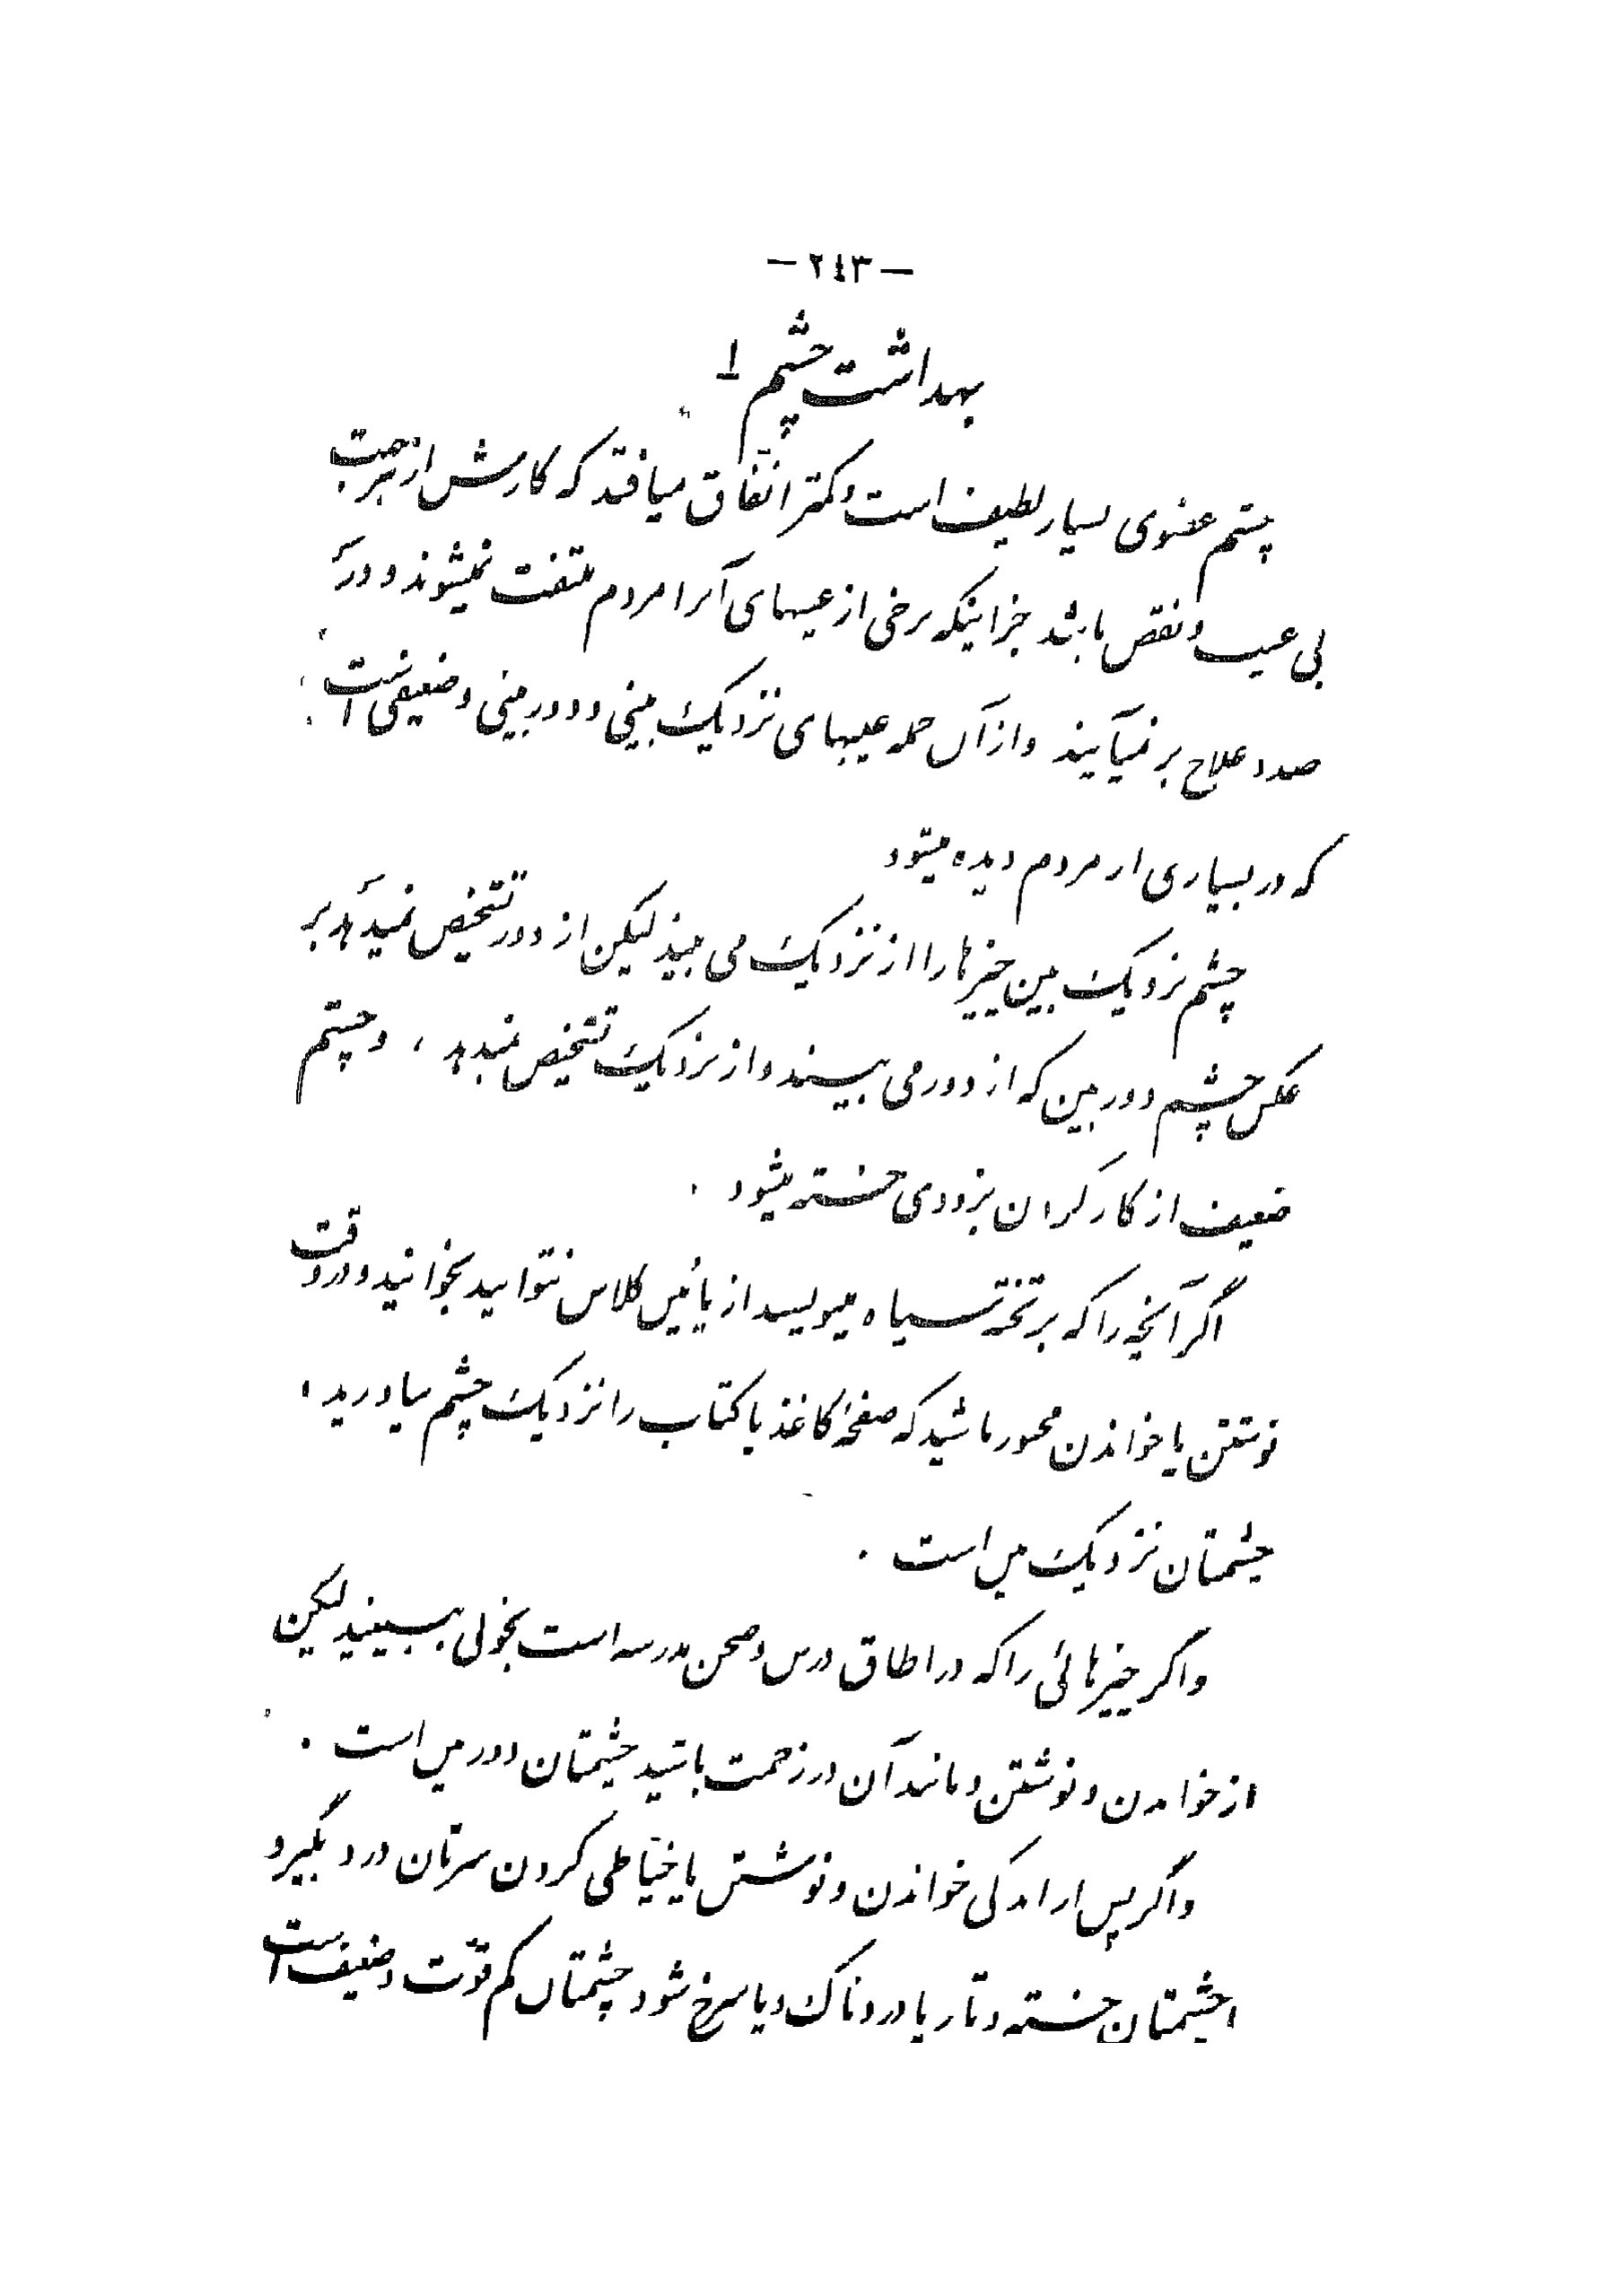 - ٢٤٣ -
بهداشت چشم ١
چشم عضوی بسیار لطیف است و کمتر اتّفاق میافتد که کارش از هر جهت
بی عیب و نقص باشد جز اینکه برخی از عیبهای آنرا مردم ملتفت نمیشوند و در
صدد علاج بر نمیآیند و از آن جمله عیبهای نزدیک بینی و دوربینی و ضعیفی است
که در بسیاری از مردم دیده میشود
چشم نزدیک بین چیزها را از نزدیک می بیند لیکن از دور تشخیص نمیدهد بر
عکس چشم دور بین که از دور می بیند و از نزدیک تشخیص نمیدهد ، و چشم
ضعیف از کار کردن بزودی خسته میشود .
اگر آنچه را که بر تخته سیاه مینویسند از پائین کلاس نتوانید بخوانید و در وقت
نوشتن یا خواندن مجبور باشید که صفحهٔ کاغذ یا کتاب را نزدیک چشم بیاورید ،
چشمتان نزدیک بین است .
و اگر چیزهائی را که در اطاق درس و صحن مدرسه است بخوبی ببینید لیکن
از خواندن و نوشتن و مانند آن در زحمت باشید چشمتان دور بین است .
و اگر پس از اندکی خواندن و نوشتن یا خیّاطی کردن سرتان درد بگیرد و
چشمتان خسته و تار یا دردناک و یا سرخ شود چشمتان کم قوّت و ضعیف است